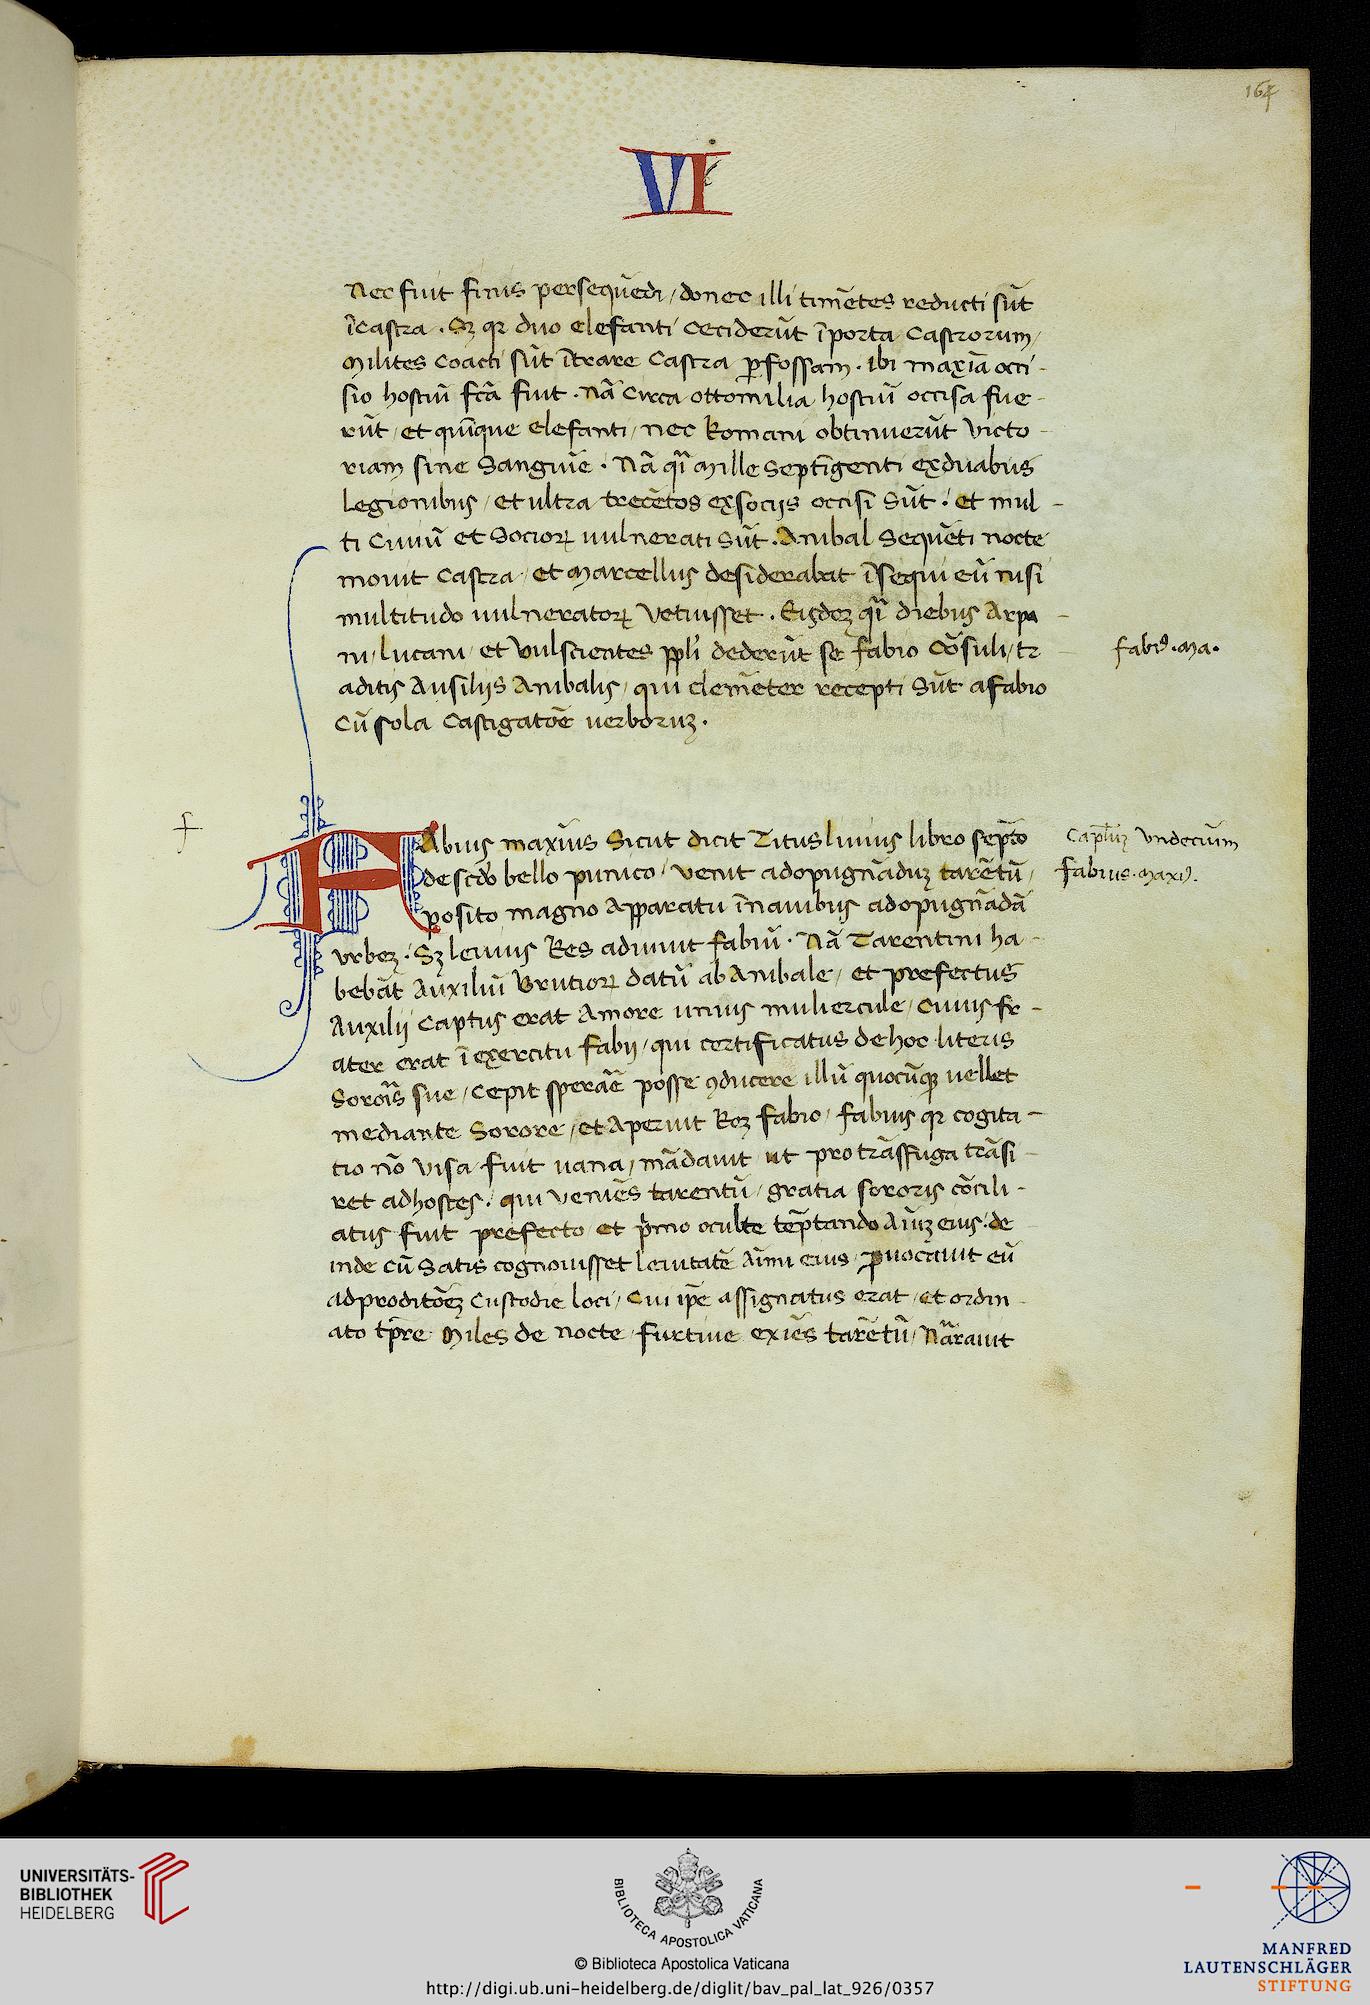 164
VI
Nec fuit finis persequēdi / donec illi timētes reducti sūt
ī castra . Sꝫ qꝛ duo elefanti ceciderūt ī porta castrorum /
milites coacti sūt ītrare castra ꝑ fossam . ibi maxīa occi -
sio hostiū fc̄a fuit . nā circa ottomilia hostiū occisa fue -
rūt / et quīque elefanti / nec Romani obtinuerūt victo -
riam sine sanguīe . Nā qͣi mille septīgenti ex duabus
legionibus / et ultra trecētos ex socijs occisi sūt . et mul -
ti ciuiū et socioꝝ uulnerati sūt . Anibal sequēti nocte
mouit castra / et Marcellus desiderabat īsequi eū nisi
multitudo uulneratoꝝ vetuisset . Eisdeꝫ qͣi diebus Arpa -
ni / lucani / et vulscientes ppl̄i dederūt se fabio cōsuli / tr -
aditis Ausilijs Anibalis / qui clemēter recepti sūt a fabio
cū sola castigatōe uerboruꝫ .
fabiꝰ . ma .
FAbius maxīus sicut dicit Titus liuius libro septō
de scd̄o bello punico / venit ad opugnāduꝫ tarētū /
posito magno apparatu ī nauibus ad opugnādā
vrbeꝫ . Sꝫ leuius Res adiuuit fabiū . Nā Tarentini ha -
bebāt Auxiliū Brutioꝝ datū ab Anibale / et prefectus
Auxilij captus erat Amore unius muliercule / cuius fr -
ater erat ī exercitu fabij / qui certificatus de hoc literis
sororis̄ sue / cepit sperāe posse ꝯducere illū quocūqꝫ uellet
mediante sorore / et aperuit Reꝫ fabio / fabius qꝛ cogita -
tio nō visa fuit uana / mādauit ut pro trāsfuga trāsi -
ret ad hostes . qui veniēs tarentū / gratia sororis cōcili -
atus fuit prefecto / et p̄mo oculte tēptando aīuꝫ eius . de
inde cū satis cognouisset leuitatē aīmi eius / ꝓuocauit eū
ad proditōeꝫ custodie loci / cui ip̄e assignatus erat / et ordin -
ato tp̄re miles de nocte furtiue exiēs tarētū / Nāravit
capl̄uꝫ vndeciūm
fabius . maxiꝰ .
f
UNIVERSITÄTS-
BIBLIOTHEK
HEIDELBERG
BIBLIOTECA APOSTOLICA VATICANA
© Biblioteca Apostolica Vaticana
http://digi.ub.uni-heidelberg.de/diglit/bav_pal_lat_926/0357
MANFRED
LAUTENSCHLÄGER
STIFTUNG